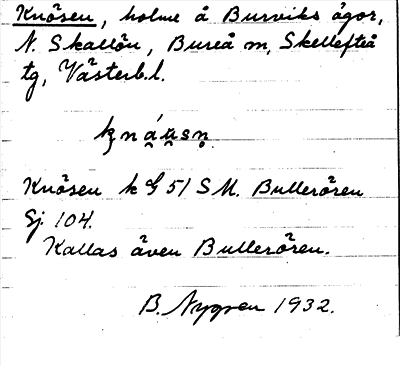 Knösen, holme å Burviks ägor,
N. Skallön, Bureå sn, Skellefteå
tg, Västerb. l.
Knösen k G 51 SM. Bullerören
Gj. 104.
Kallas även Bullerören.
B. Nygren 1932.